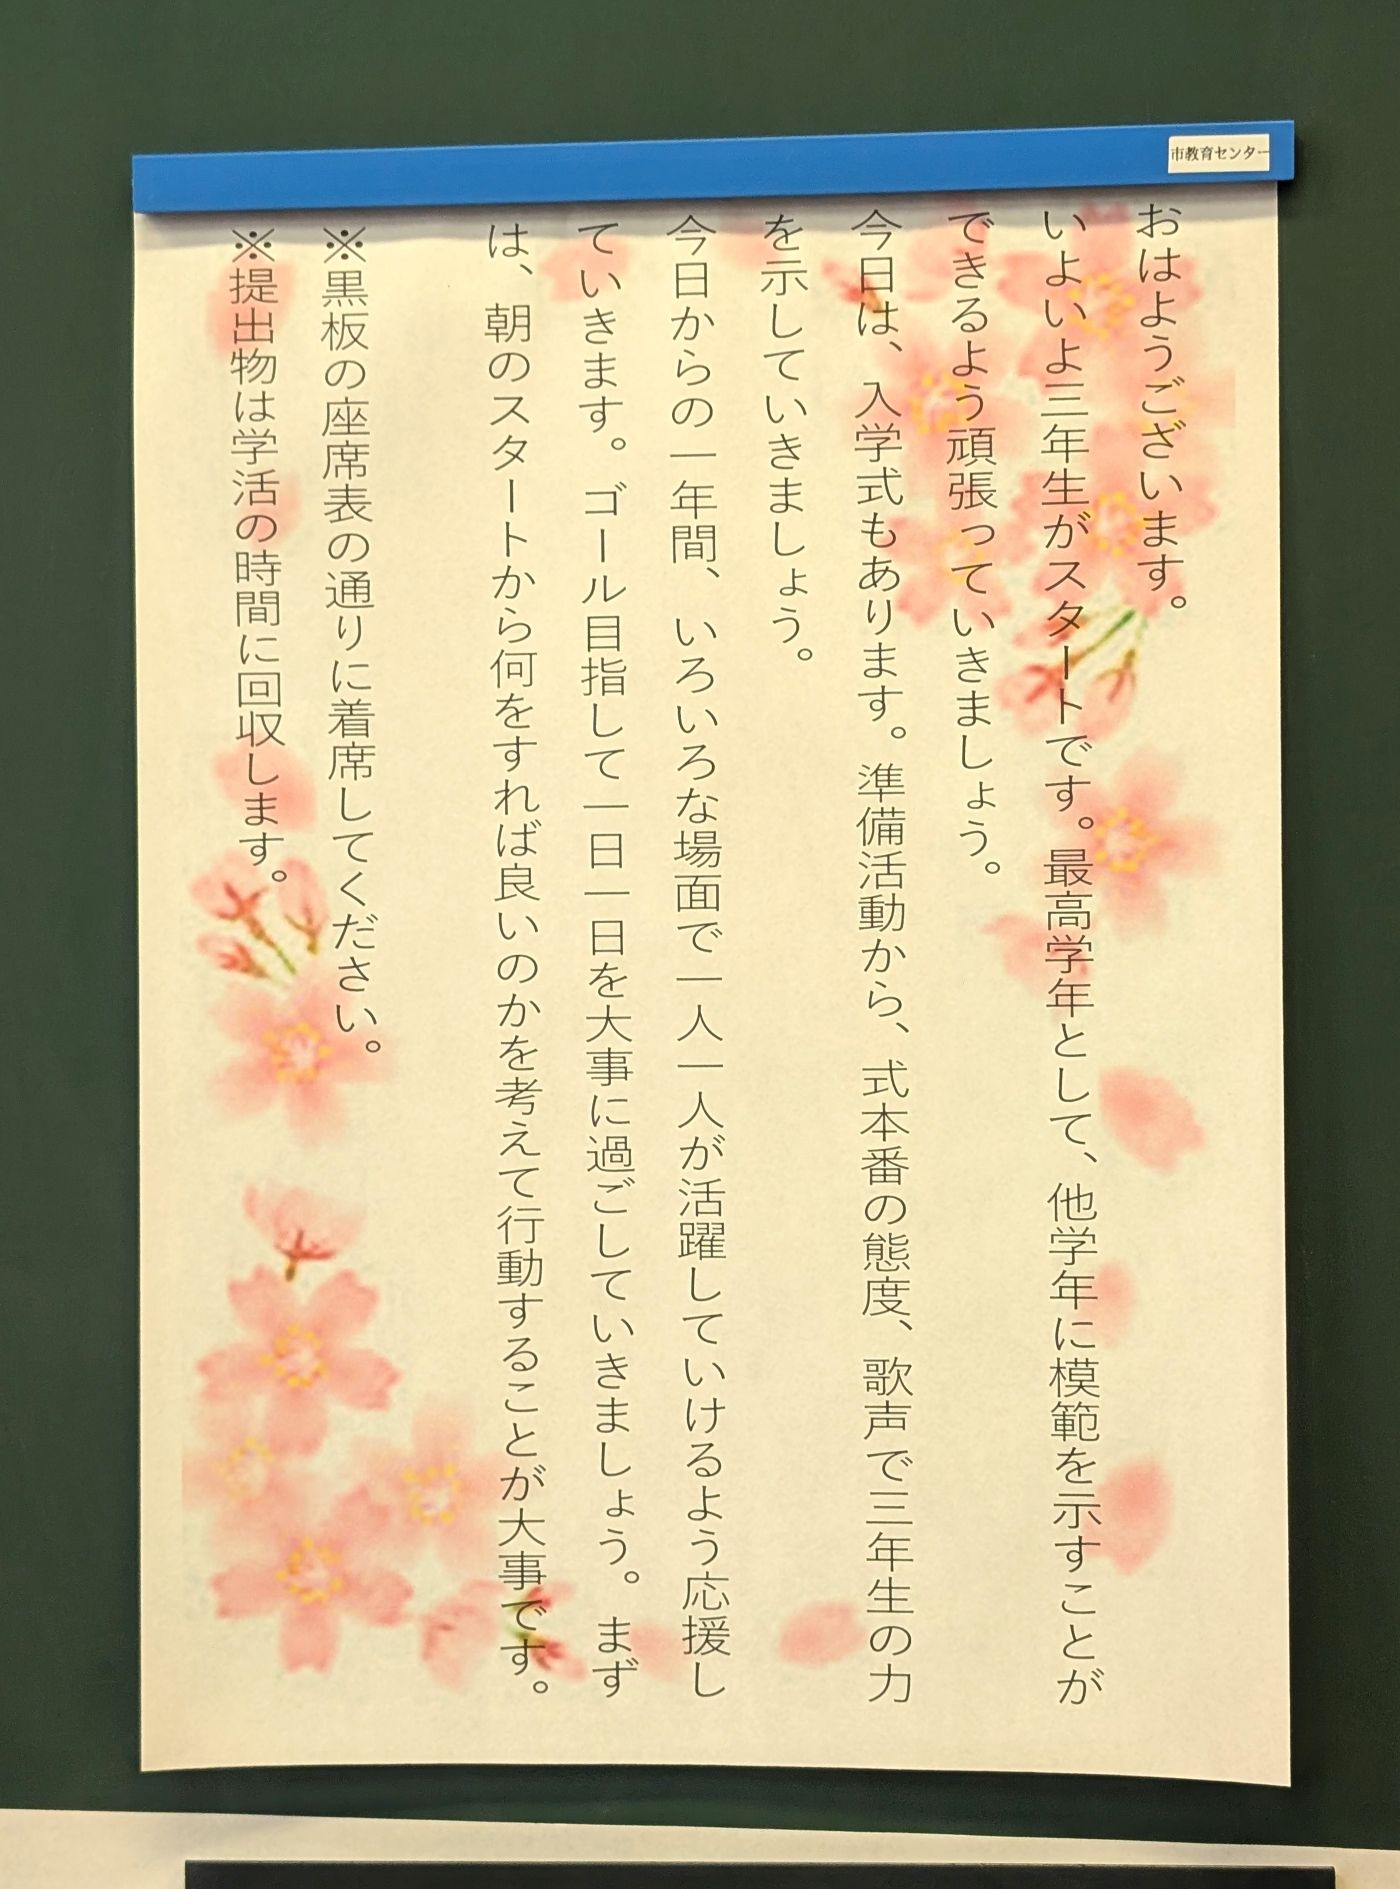 市教育センター
おはようございます。
いよいよ三年生がスタートです。最高学年として、他学年に模範を示すことが
できるよう頑張っていきましょう。
今日は、入学式もあります。準備活動から、式本番の態度、歌声で三年生の力
を示していきましょう。
今日からの一年間、いろいろな場面で一人一人が活躍していけるよう応援し
ていきます。ゴール目指して一日一日を大事に過ごしていきましょう。まず
は、朝のスタートから何をすれば良いのかを考えて行動することが大事です。
※黒板の座席表の通りに着席してください。
※提出物は学活の時間に回収します。